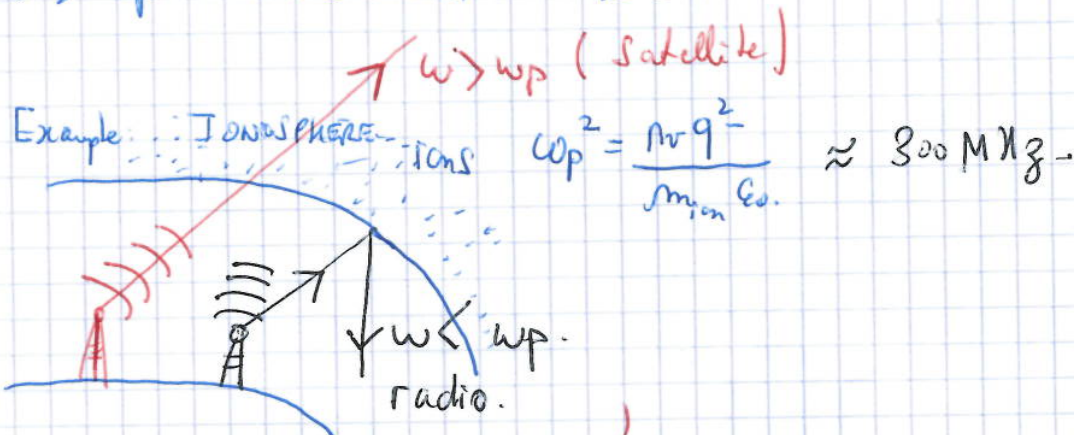 ω > ωp ( Satellite )
Example: IONOSPHERE
ions ωp² = Nv q² / mion ε₀. ≈ 300 MHz.
ω < ωp.
radio.